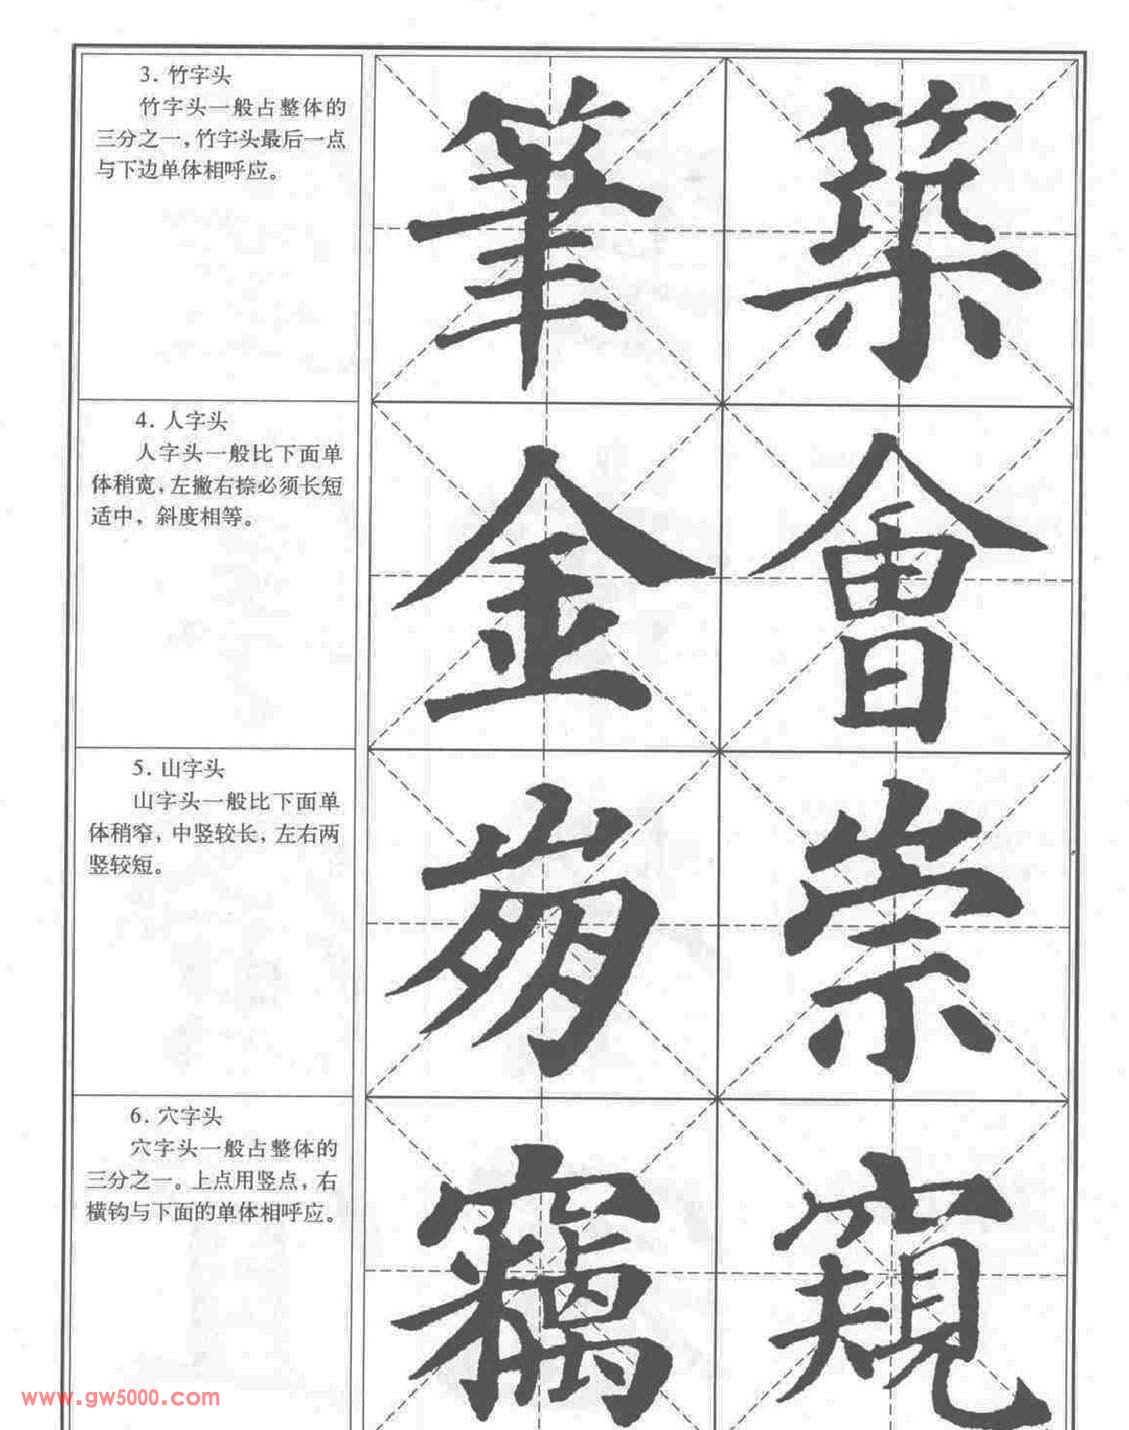 3. 竹字头
竹字头一般占整体的
三分之一,竹字头最后一点
与下边单体相呼应。
筆 築
4. 人字头
人字头一般比下面单
体稍宽,左撇右捺必须长短
适中,斜度相等。
金 會
5. 山字头
山字头一般比下面单
体稍窄,中竖较长,左右两
竖较短。
崇
6. 穴字头
穴字头一般占整体的
三分之一。上点用竖点,右
横钩与下面的单体相呼应。
竊 窺
www.gw5000.com